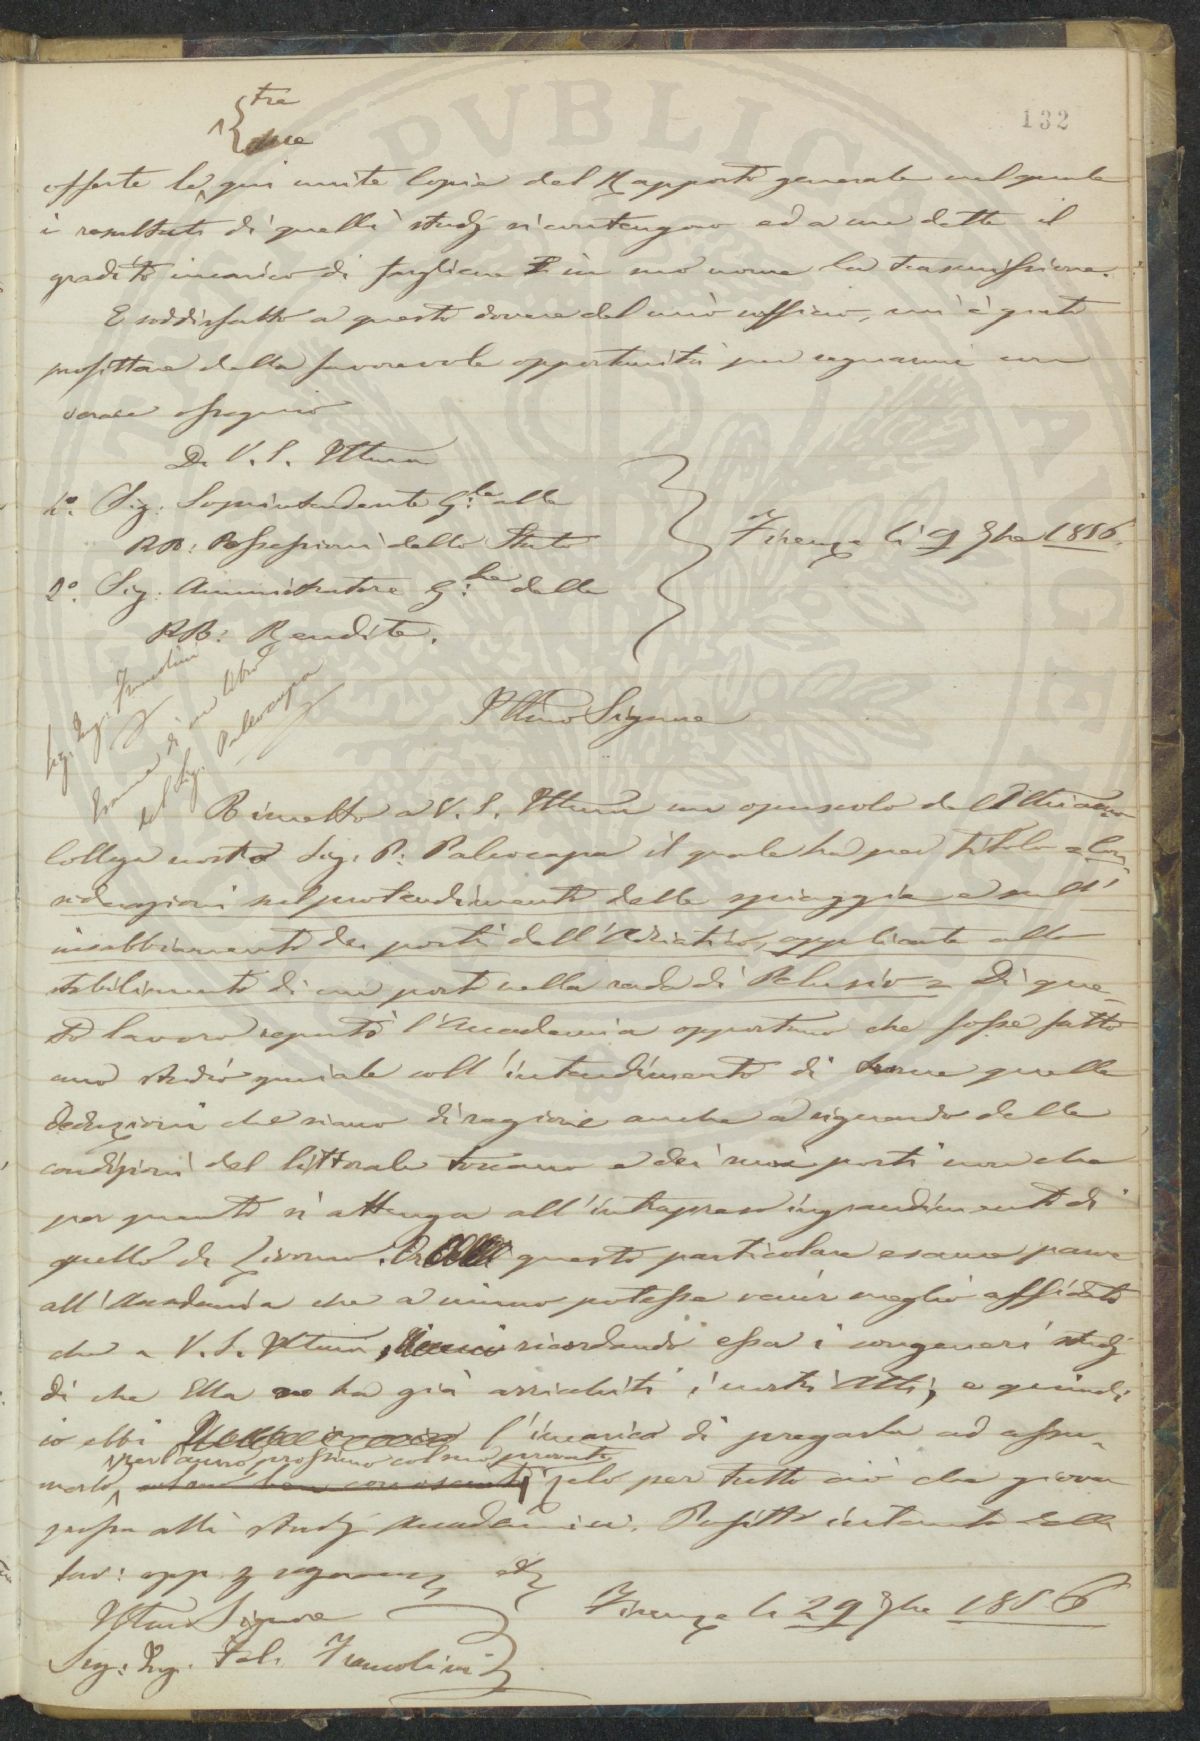 132
tre
due
offerte le qui unite Copie del Rapporto generale nel quale
i resultati di quelli studj si contengono ed a me dette il
gradito incarico di fargliene in suo nome la trasmissione.
E soddisfatto a questo dovere del mio ufficio, mi è grato
profittare della favorevole opportunità per segnarmi con
verace ossequio
Di V. S. Illma
1º. Sig: Soprintendente G:le alle
RR: Possessioni dello Stato
2º. Sig: Amministratore G:le delle
RR: Rendite.
Firenze li 9 9bre 1856.
Sig. Ing. Francolini
Esame di un libro
del Sig. Paleocapa
Illmo Signore
Rimetto a V. S. Illma un opuscolo dell'Illmo
Collega nostro Sig: P: Paleocapa il quale ha per titolo = Con
siderazioni sul protendimento delle spiaggie e sull'
insabbiamento dei porti dell'Adriatico, applicate allo
stabilimento di un porto nella rada di Pelusio = Di que-
sto lavoro reputò l'Accademia opportuno che fosse fatto
uno studio speciale coll'intendimento di trarne quelle
deduzioni che siano di ragione anche a riguardo delle
condizioni del littorale toscano e dei suoi porti non che
per quanto si attenga all'intrapreso ingrandimento di
quello di Livorno. Or questo particolare esame parve
all'Accademia che a niuno potesse venir meglio affidato
che a V. S. Illma, ricordando essa i congeneri studj
di che Ella ne ha già arricchiti i nostri Atti, e quindi
io ebbi l'incarico di pregarla ad assu-
per l'anno prossimo col suo provato
merlo, col suo ben conosciuto zelo per tutto ciò che giovar
possa alli studj Accademici. Profitto intanto della
fav: opp. di segnarmi
Illmo Signore
Sig: Ing. Fel. Francolini
Firenze li 29 9bre 1856